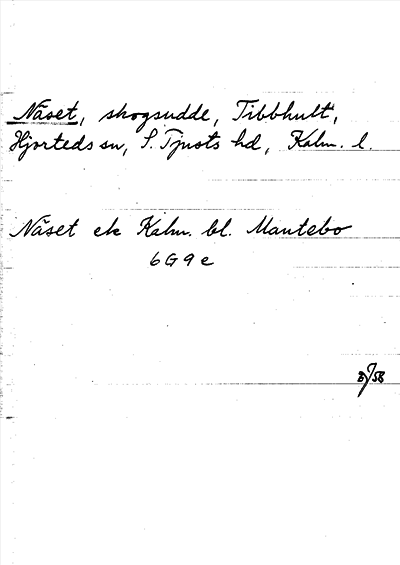 Näset, skogsudde, Tibbhult,
Hjorteds sn, S. Tjusts hd, Kalm. l.
Näset ek Kalm. bl. Mantebo
6G9e